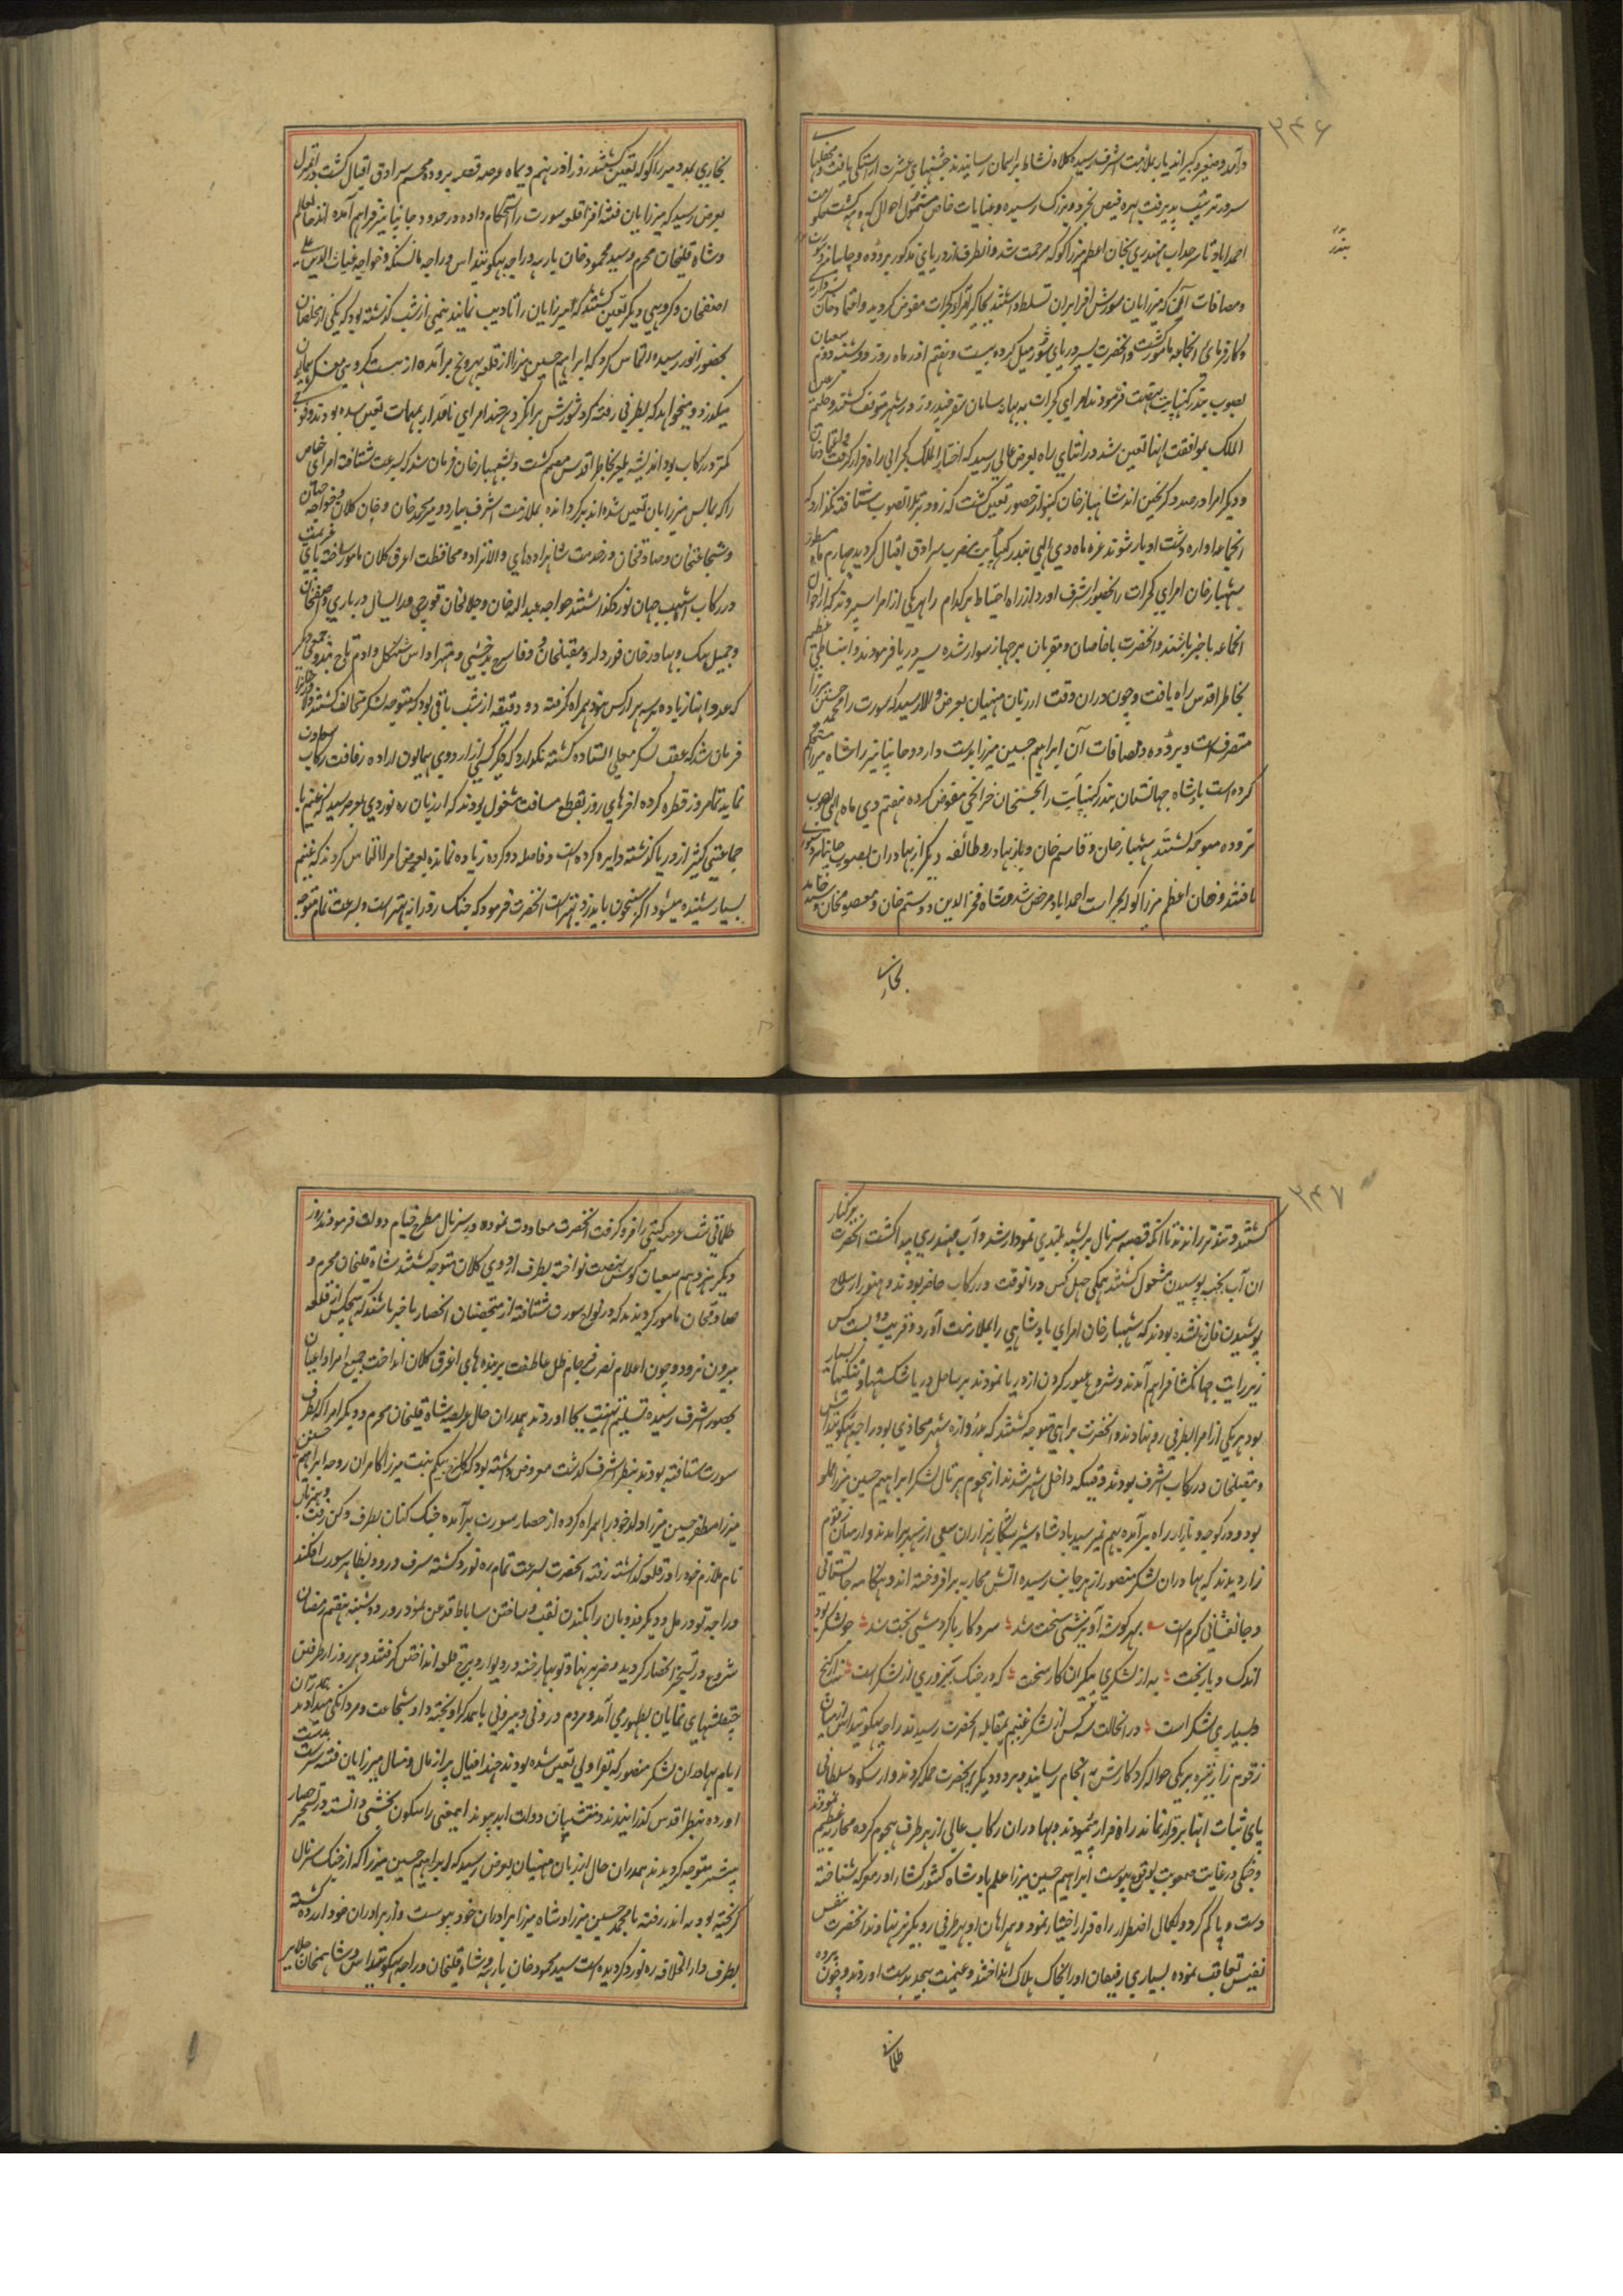 ۳۴۶
درآمد و صغیر و کبیر اندیار بملازمت اشرف رسیده کلاه نشاط برآسمان رسانیدند جشنهای عشرت آراستگی یافت و محفلهای
سرور ترتیب پذیرفت بهره فیض بخرد و بزرگ رسیده و عنایات خاص مشمول احوال که و مه گشت حکومت
احمداباد تا سرحد آب مهندری بخان اعظم میرزا کوکه مرحمت شد و انطرف از دریای مذکور بروده و جاپانیر و سورت
و مضافات آن که میرزایان شورش افزا بران تسلط داشتند بجاگیر امرای گجرات مفوض گردید و اعتماد خان
و کارفرمای انجماعه مامور گشت و انحضرت بسیر دریای شور میل کرده بیست و هفتم اذر ماه روز دوشنبه دوم شعبان
بصوب بندر کنبایت نهضت فرمودند امرای گجرات به بهانه سامان سفر چند روز در شهر متوقف گشتند و حکیم عین
الملک بموافقت اینها تعین شد در اثنای راه بعرض عالی رسید که اختیار الملک گجراتی راه فرار گرفت و اعتماد خان
و دیگر امرا در صدد گریختن اند شهباز خان کنبو از حضور تعین گشت که زود تر بلا تصویب شتافته نگذارد که
انجماعه اواره دشت ادبار شوند غره ماه دی الهی بندر کنبایت مضرب سرادق اقبال گردید چهارم ماه مسطور
شهباز خان امرای گجرات را بحضور اشرف اورد از راه احتیاط هرکدام را بهریکی از امرا سپردند که از احوال
انجماعه باخبر باشند و انحضرت با خاصان و مقربان برجهاز سوار شده سیر دریا فرمودند و انبساط عظیم
بخاطر اقدس راه یافت و چون دران وقت از زبان منهیان بعرض والا رسید که سورت را محمد حسین میرزا
متصرف است و بروده و مضافات آن ابراهیم حسین میرزا بدست دارد و جاپانیر را شاه میرزا مستحکم
کرده است پادشاه جهانستان بندر کنبایت را بحسنخان خزانچی مفوض کرده هفتم دی ماه الهی بصوب
بروده متوجه گشتند شهباز خان و قاسم خان و باز بهادر و طائفه دیگر از بهادران بصوب جاپانیر دستوری
یافتند و خان اعظم میرزا کوکه بحراست احمداباد مرخص شد و شاه فخر الدین و دوستم خان و معصوم خان و سید حامد
بخاری
بندر
بخاری بمدد میرزا کوکه تعین گشتند روز اذر نهم دیماه عرصه قصبه بروده مخیم سرادق اقبال گشت در انمنزل
بعرض رسید که میرزایان فتنه افزا قلعه سورت را استحکام داده در حدود جاپانیر فراهم آمده اند خان عالم
و شاه قلیخان محرم و سید محمود خان بارهه و راجه بهگونتداس و راجه مانسنگه و خواجه غیاث الدین علی
اصفخان و گروهی دیگر تعین گشتند که میرزایان را تادیب نمایند نیمی از شب گذشته بود که یکی از مخلصان
بحضور انور رسیده التماس کرد که ابراهیم حسین میرزا از قلعه بهروج برآمده از هشت کروهی معسکر همایون
میگذرد و میخواهد که بطرفی رفته گرد شورش برانگیزد هرچند امرای نامدار بمهمات تعین شده بودند و فوجی
کمتر در رکاب بود اندیشه یلغر بخاطر اقدس مصمم گشت و شهباز خان فرمان شد که بسرعت شتافته امرای خاص
را که بمالش میرزایان تعین شده اند برگردانده بملازمت اشرف بیارد و میر محمد خان و خان کلان و خواجه جهان
و شجاعتخان و صادقخان در خدمت شاهزاده های والانژاد و محافظت اعرق کلان مامور ساخته پای عزیمت
در رکاب اشهب جهان نورد گذاشتند خواجه عبدالله خان و جلالخان قورچی و درایسال درباری و اصفخان
و جمیل بیک و بهادر خان قوردار و مقبلخان و وفا سرخ بدخشی و متهرا داس سنگل و ادم تاج بند و جمعی دیگر
که عدد اینها زیاده بر سه چهار کس نبود همراه گرفته دو دقیقه از شب باقی بود که متوجه لشکر مخالف گشتند و
فرمان شد که عقب لشکر معلی استاده گشته نگذارد که دیگر کسی از اردوی همایون اراده رفاقت رکاب سعادت
نماید تمام روز قطره کرده اخرهای روز بقطع مسافت مشغول بودند که از زبان ره نوردی بعرض رسید که غنیم با
جماعتی کثیر از دریا گذشته دایره کرده است و فاصله دو کروه زیاده نمانده بعضی امرا التماس کردند که غنیم
بسیار شنیده میشود اگر شبخون باید زد بهتر است انحضرت فرمود که جنگ روزانه بهتر است و بسرعت تمام متوجه
۳۴۷
گشتند و تند تر راندند تا انکه قصبه سرنال بر پشته بلندی نمودار شد و آب مهندری پیدا گشت انحضرت بر کنار
ان آب بجیبه پوسیدن مشغول گشتند همگی چهل کس در انوقت در رکاب حاضر بودند و هنوز از سلاح
پوشیدن فارغ نشده بودند که شهباز خان امرای پادشاهی را بملازمت آورد و قریب دو بست کس
زیر رایت جهانگشا فراهم آمدند و شروع عبور کردن از دریا نمودند بر ساحل دریا شکستها و تنگیهای بسیار
بود هر یکی از امرا بطرفی رو نهادند و انحضرت براهی متوجه گشتند که بدروازه شهر محاذی بود راجه بهگونتداس
و مقبلخان در رکاب اشرف بودند وقتیکه داخل شهر شدند از هجوم پرتال لشکر ابراهیم حسین میرزا مملو
بود و در کوچه و بازار راه برآمده بهم نمیرسید پادشاه شیر شکار بهزاران سعی از شهر برآمدند و از میان زقوم
زار دیدند که بهادران لشکر منصور از هر جانب رسیده اتش محاربه برافروخته اند و هنگامه جانستانی
و جانفشانی گرم است بهر گوشه آویزشی سخت شد سر و کار با گردش بخت شد چو لشکر بود
اندک و یار بخت به از لشکری بیکران کار سخت که در جنگ پیروزی از لشکر است نه از گنج
و بسیاری لشکر است درانحالت سه کس از لشکر غنیم بمقابله انحضرت رسیدند راجه بهگونتداس از میان
زقوم زار نیزه بر یکی حواله کرد کارش به انجام رسانید و بر دو دیگر انحضرت حمله کردند و از شکوه سلطانی
پای ثبات اینها برقرار نماند راه فرار پیمودند و بهادران رکاب عالی از هر طرف هجوم کرده محاربه عظیم نمودند
و جنگی در غایت صعوبت بوقوع پیوست ابراهیم حسین میرزا علم پادشاه کشورکشا را در معرکه شناخته
دست و پا گم کرد و بکمال اضطرار راه فرار اختیار نمود و همراهان او بهر طرفی رو بگریز نهادند انحضرت بنفس
نفیس تعاقب نموده بسیاری رفیقان او را بخاک هلاک انداختند و غنیمت بیحد بدست اوردند و چون پرده
ظلمانی
ظلمانی شب عرصه گیتی را فرو گرفت انحضرت معاودت نموده در سرنال مطرح خیام دولت فرمودند روز
دیگر نوزدهم شعبان کوس نهضت نواخته بطرف اردوی کلان متوجه گشتند شاه قلیخان محرم و
صادقخان مامور گردیدند که در نواح سورت شتافته از متحصنان انحصار باخبر باشند که هیچکس از قلعه
بیرون نرود و چون اعلام نصرت فرجام ظل عاطفت بر بنده های اغرق کلان انداخت جمیع امرا و اعیان
بحضور اشرف رسیده تسلیم تهنیت بجا اوردند همدران حال عریضه شاه قلیخان محرم و دیگر امرا که بطرف
سورت شتافته بودند بنظر اشرف گذشت معروض داشته بود که گلرخ بیگم بنت میرزا کامران زوجه ابراهیم حسین
میرزا مظفر حسین میرزا ولد خود را همراه کرده از حصار سورت برآمده جنگ کنان بطرف دکن رفت و همزبان
نام ملازم خود را در قلعه گذاشته رفته انحضرت بسرعت تمام ره نورد گشته سرف ورود بظاهر سورت افکند
و راجه تودرمل و دیگر فدویان را بکندن نقب و ساختن ساباط قدغن نمود روز دوشنبه هفتم رمضان
شروع در تسخیر انحصار گردید و ضربزنها و توپها رخنه در دیوار و برج قلعه انداختن گرفتند و هر روز از طرفین
چپقلشهای نمایان بظهور می آمد و مردم درونی و بیرونی باهمدگر اویخته داد شجاعت و مردانگی میدادند همدران
ایام بهادران لشکر منصور که بتعاقب تعین شده بودند چند افیال پر از مال و منال میرزایان فتنه سرشت بدست
اورده بنظر اقدس گذرانیدند و منتسبان دولت ابد پیوند اینمعنی را شگون بخشی دانسته در تسخیر حصار
بیشتر متوجه گردیدند همدران حال از زبان منهیان بعرض رسید که ابراهیم حسین میرزا که از جنگ سرنال
گریخته بود به اندر رفته با محمد حسین میرزا و شاه میرزا برادران خود پیوست و از برادران خود ازرده گشته
بطرف دار الخلافه ره نورد گردیده است سید محمود خان بارهه و شاه قلیخان و راجه بهگونتداس و شاهم خان جلایر